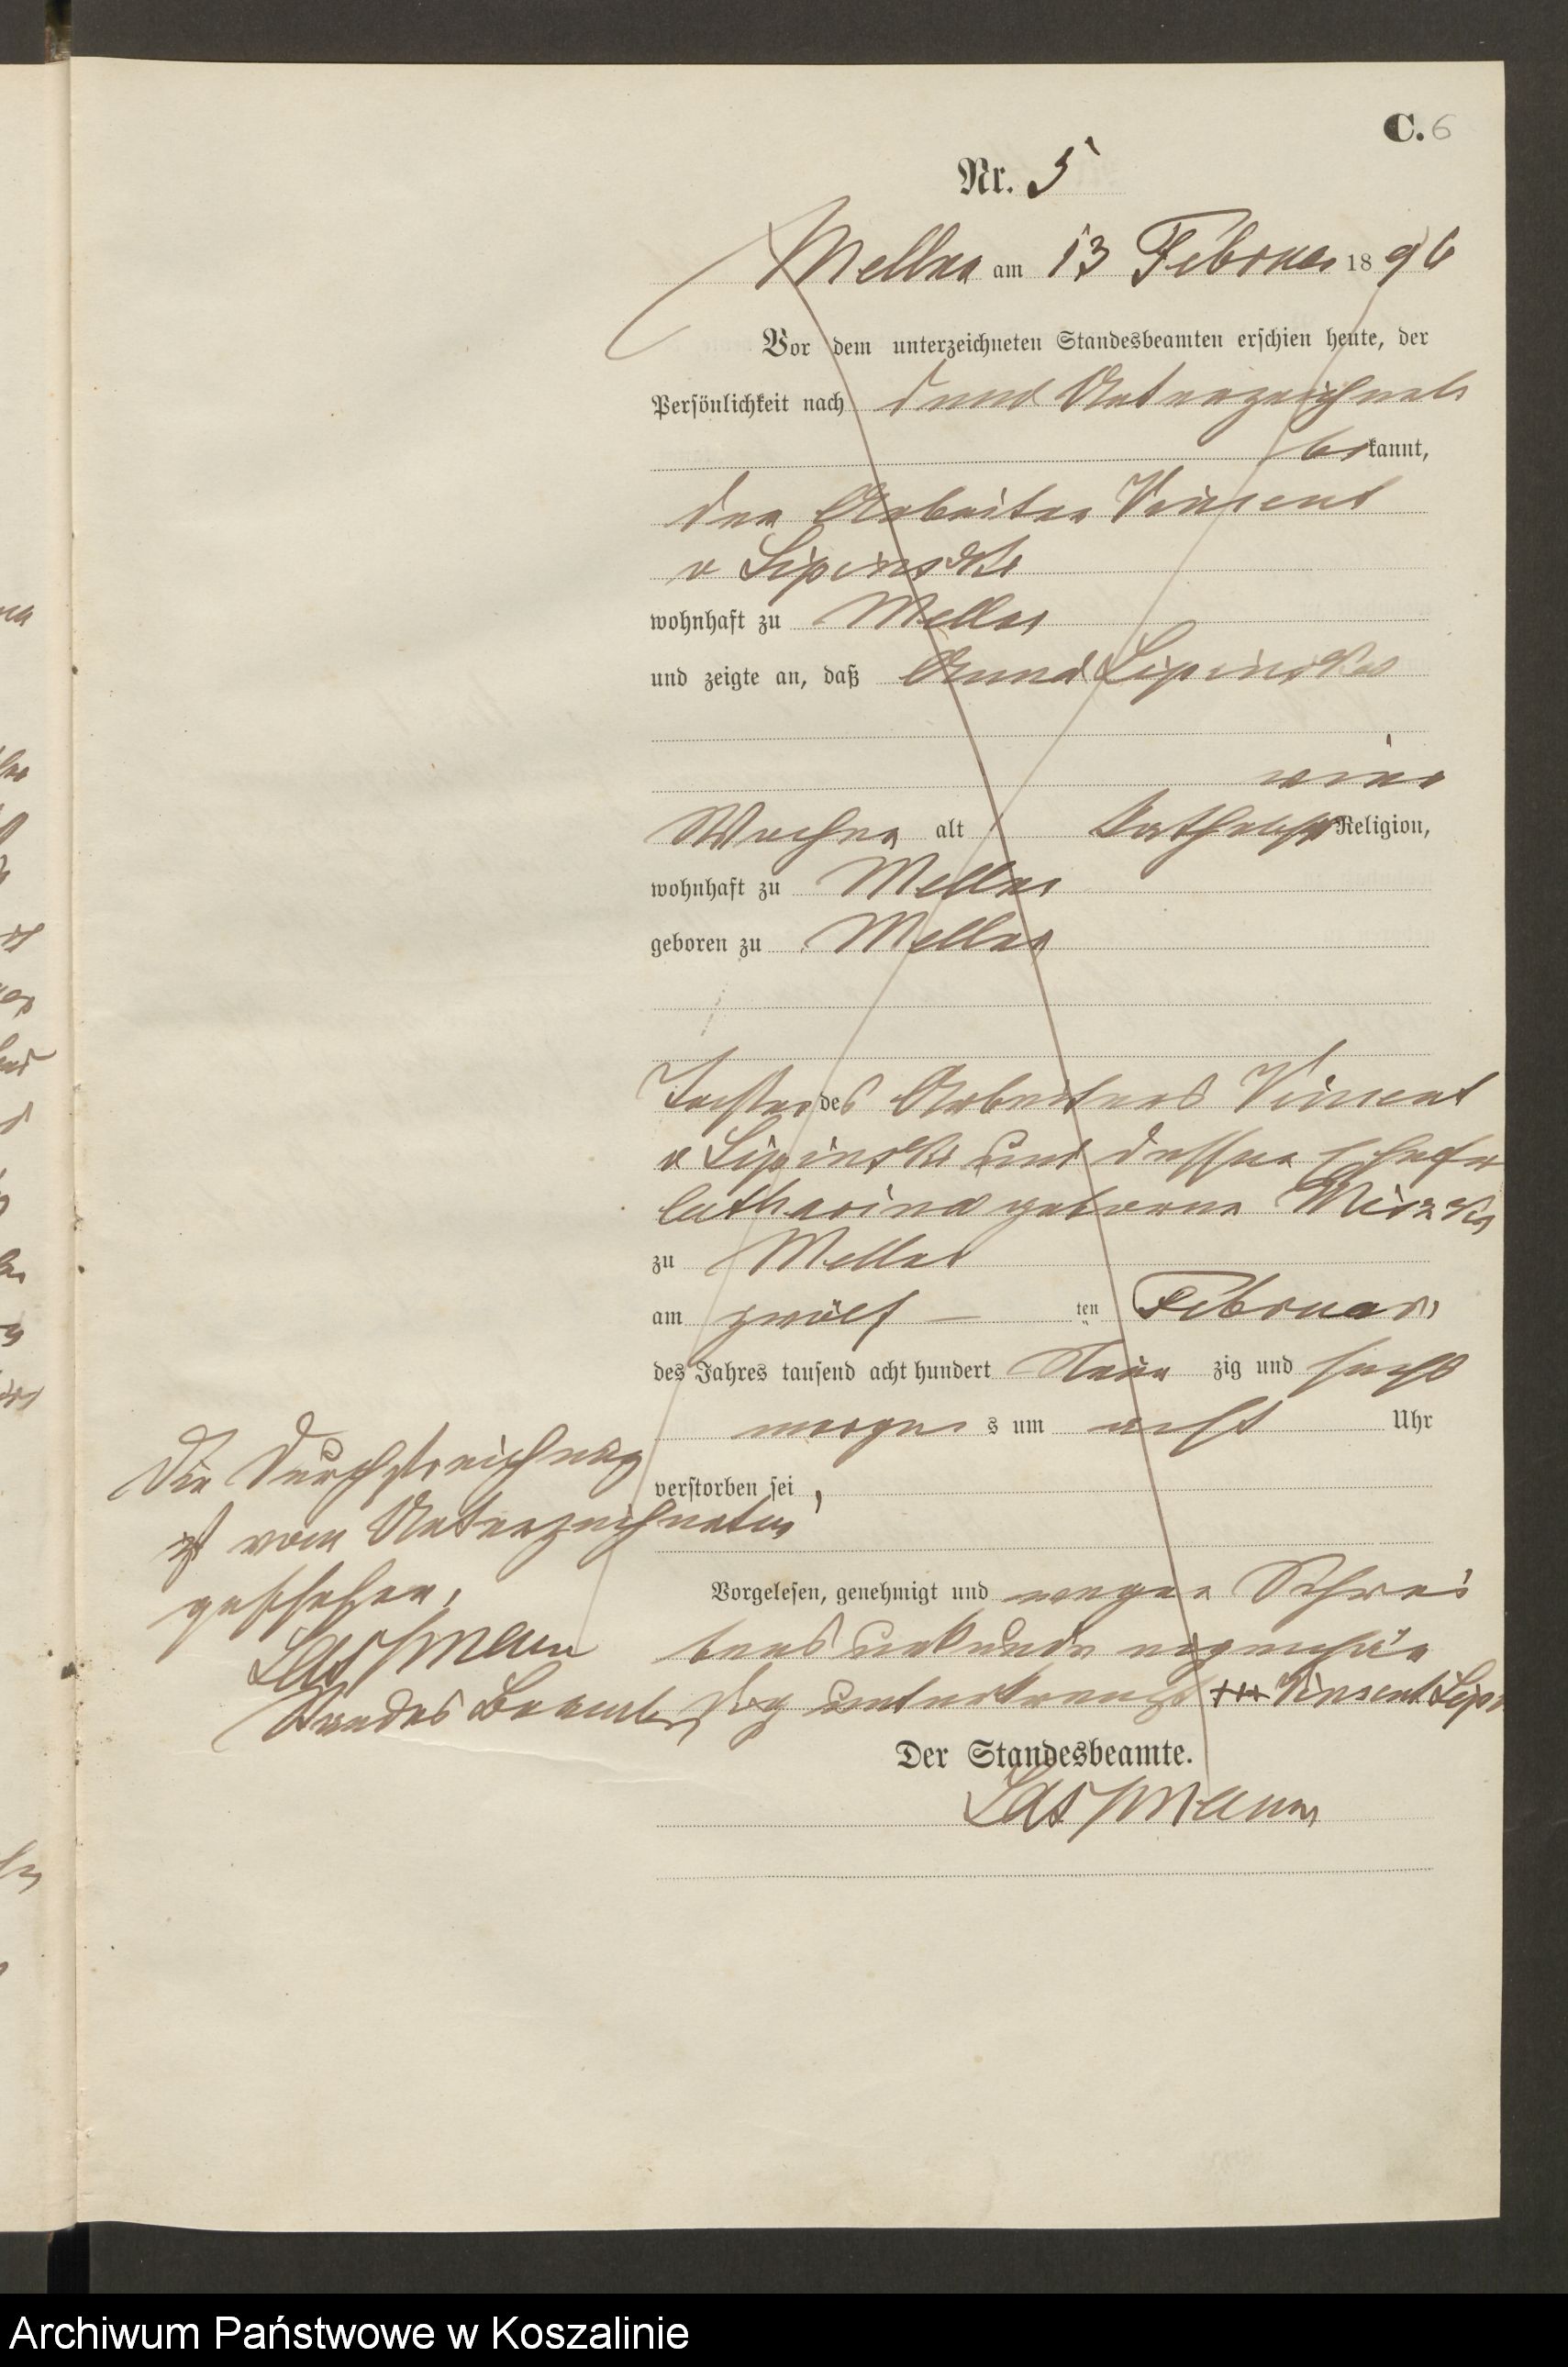 C. 6
Nr. 5
Mellen am 13 Februar 1896
Vor dem unterzeichneten Standesbeamten erschien heute, der
Persönlichkeit nach dem Unterzeichnete
bekannt,
der Arbeiter Vincent
v Lipinski
wohnhaft zu Mellen
und zeigte an, daß Anna Lipinski
eine
Woche alt katholisch Religion,
wohnhaft zu Mellen
geboren zu Mellen
Tochter des Arbeiters Vincent
v Lipinski und dessen Ehefr
Catharina geborene
zu Mellen
am zwölf ten Februar
des Jahres tausend acht hundert Neun zig und sechs
morgen s um acht Uhr
verstorben sei,
Vorgelesen, genehmigt und wegen Schrei
bens unkunde eigenhän
dig unterkreuzt +++ Vincent Lipi
Der Standesbeamte.
Lassmann
Die Durchstreichung
ist vom Unterzeichneten
geschehen.
Lassmann
Standes Beamter
Archiwum Państwowe w Koszalinie